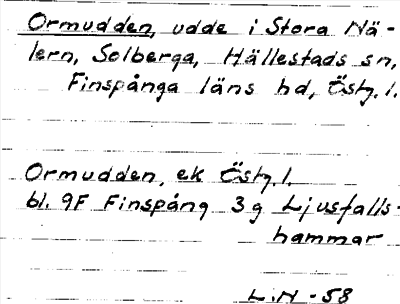 Ormudden, udde i Stora Nä-
lern, Solberga, Hällestads sn,
Finspånga läns hd, Östg. l.
Ormudden, ek Östg. l.
bl. 9F Finspång 3g Ljusfalls-
hammar
L.N -58